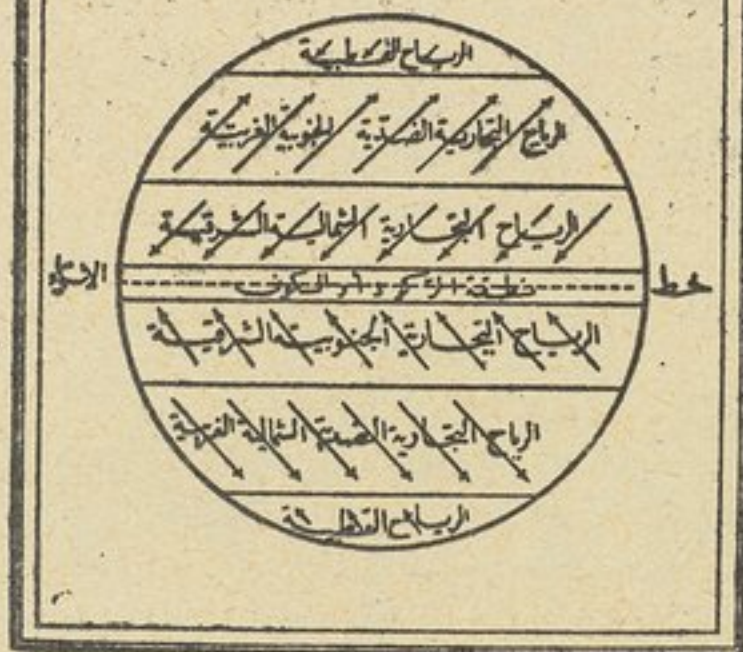 الرياح القطبية
الرياح التجارية الضدية الجنوبية الغربية
الرياح التجارية الشمالية الشرقية
خط الاستواء
منطقة الركود أو السكون
الرياح التجارية الجنوبية الشرقية
الرياح التجارية الشمالية الغربية
الرياح القطبية